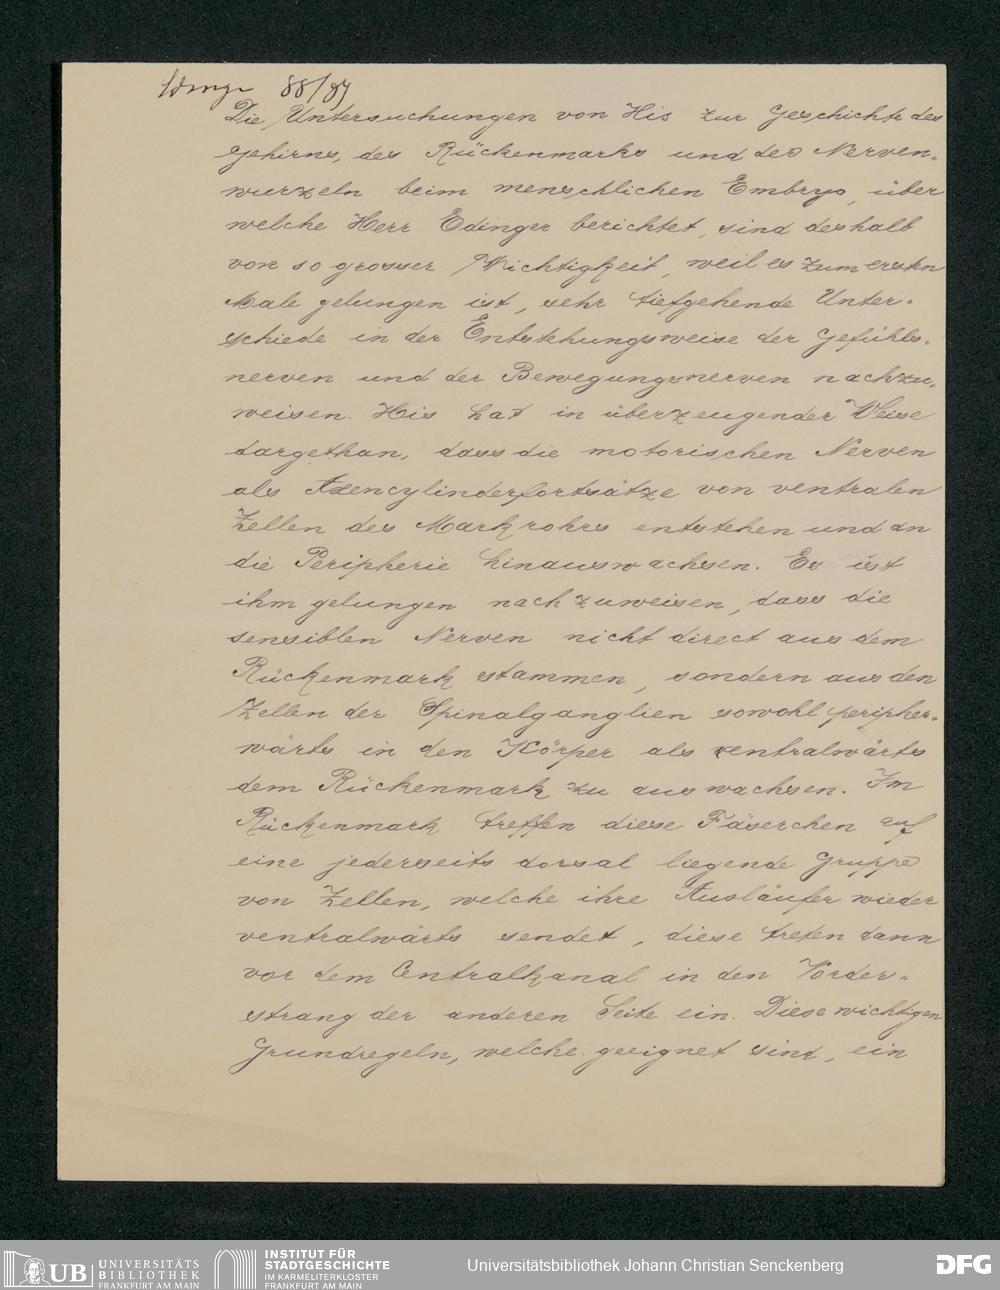 88/89
Die Untersuchungen von His zur Geschichte des
Gehirns, des Rückenmarks und des Nerven-
wurzeln beim menschlichen Embryo, über
welche Herr Edinger berichtet, sind deshalb
von so grosser Wichtigkeit, weil es zum ersten
Male gelungen ist, sehr tiefgehende Unter-
schiede in der Entstehungsweise der Gefühls-
nerven und der Bewegungsnerven nachzu-
weisen. His hat in überzeugender Weise
dargethan, dass die motorischen Nerven
als Axencylinderfortsätze von ventralen
Zellen des Markrohrs entstehen und an
die Peripherie hinauswachsen. Es ist
ihm gelungen nachzuweisen, dass die
sensiblen Nerven nicht direct aus dem
Rückenmark stammen, sondern aus den
Zellen der Spinalganglien sowohl peripher-
wärts in den Körper als centralwärts
dem Rückenmark zu auswachsen. Im
Rückenmark treffen diese Fäserchen auf
eine jederseits dorsal liegende Gruppe
von Zellen, welche ihre Ausläufer wieder
ventralwärts sendet, diese treten dann
vor dem Centralkanal in den Vorder-
strang der anderen Seite ein. Diese wichtigen
Grundregeln, welche geeignet sind, ein
UB UNIVERSITÄTS
BIBLIOTHEK
FRANKFURT AM MAIN
INSTITUT FÜR
STADTGESCHICHTE
IM KARMELITERKLOSTER
FRANKFURT AM MAIN
Universitätsbibliothek Johann Christian Senckenberg
DFG